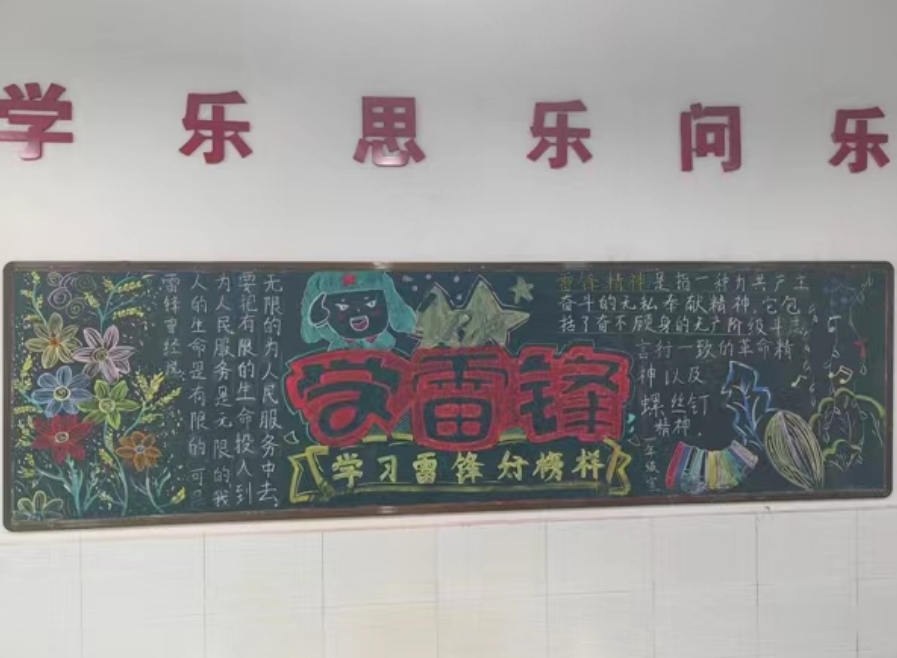 学乐思乐问乐
雷锋曾经说
人的生命是有限的 可是
为人民服务是无限的我
要把有限的生命投入到
无限的为人民服务中去。
学雷锋
学习雷锋好榜样
雷锋精神是指一种为共产主
奋斗的无私奉献精神,它包
括了奋不顾身的无产阶级斗
言行一致的革命精
神 以及
螺丝钉
精神.
一年级